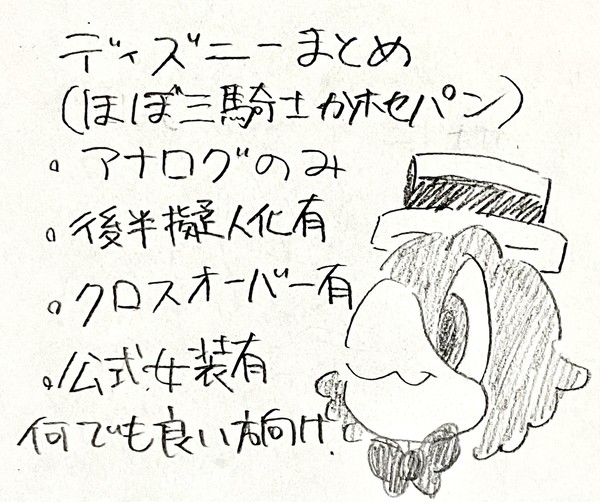 ディズニーまとめ
(ほぼ三騎士かホセパン)
・アナログのみ
・後半擬人化有
・クロスオーバー有
・公式女装有
何でも良い方向け.